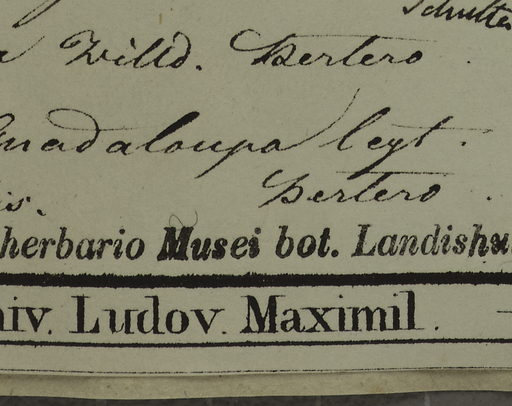 Schultes
a Willd. Bertero.
Guadaloupa legt.
Bertero.
is.
herbario Musei bot. Landishu
niv. Ludov. Maximil.